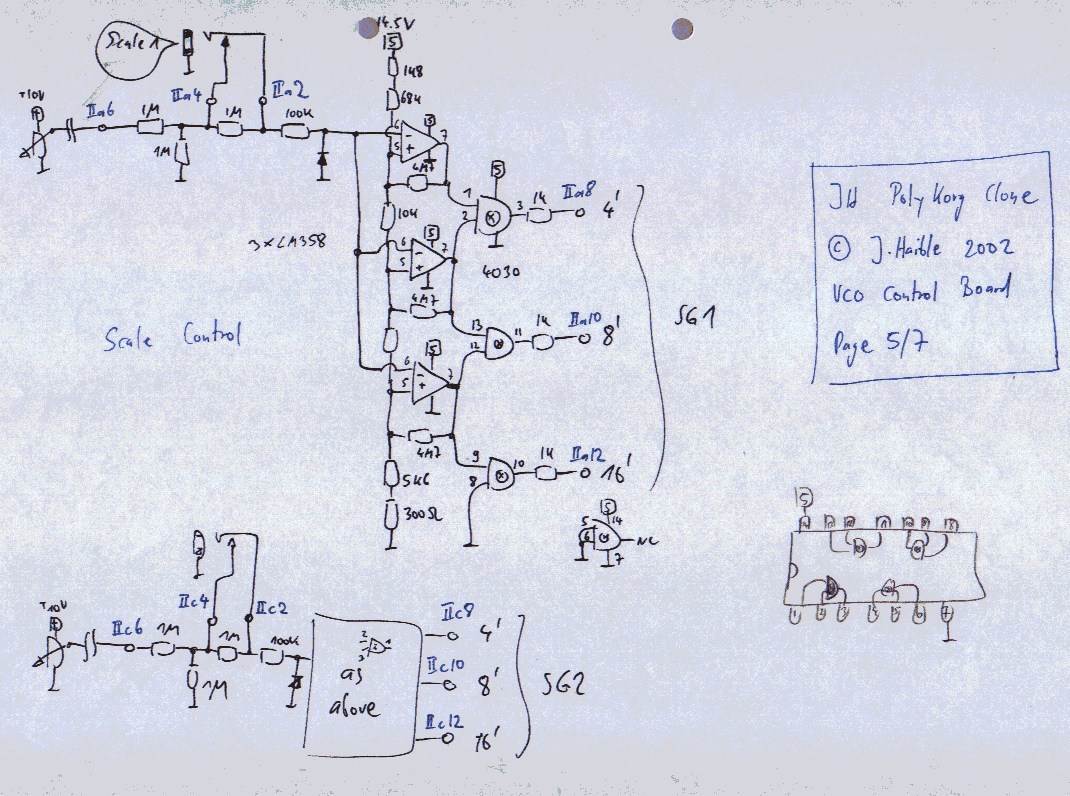 14.5V
15
Scale 1
1k8
68k
+10V
IIa6
IIa4
IIa2
1M
1M
100K
1M
15
6
5
7
-
+
4M7
15
1
2
3
1k
IIa8
4'
10k
3×LM358
15
6
5
7
-
+
4030
4M7
13
12
11
1k
IIa10
8'
SG1
Scale Control
15
6
5
7
-
+
4M7
9
8
10
1k
IIa12
16'
5k6
300Ω
15
5
6
14
7
NC
JH PolyKorg Clone
© J.Haible 2002
VCO Control Board
Page 5/7
15
7
+10V
IIc6
IIc4
IIc2
1M
1M
100k
1M
2
3
1
as
above
IIc8
4'
IIc10
8'
IIc12
16'
SG2